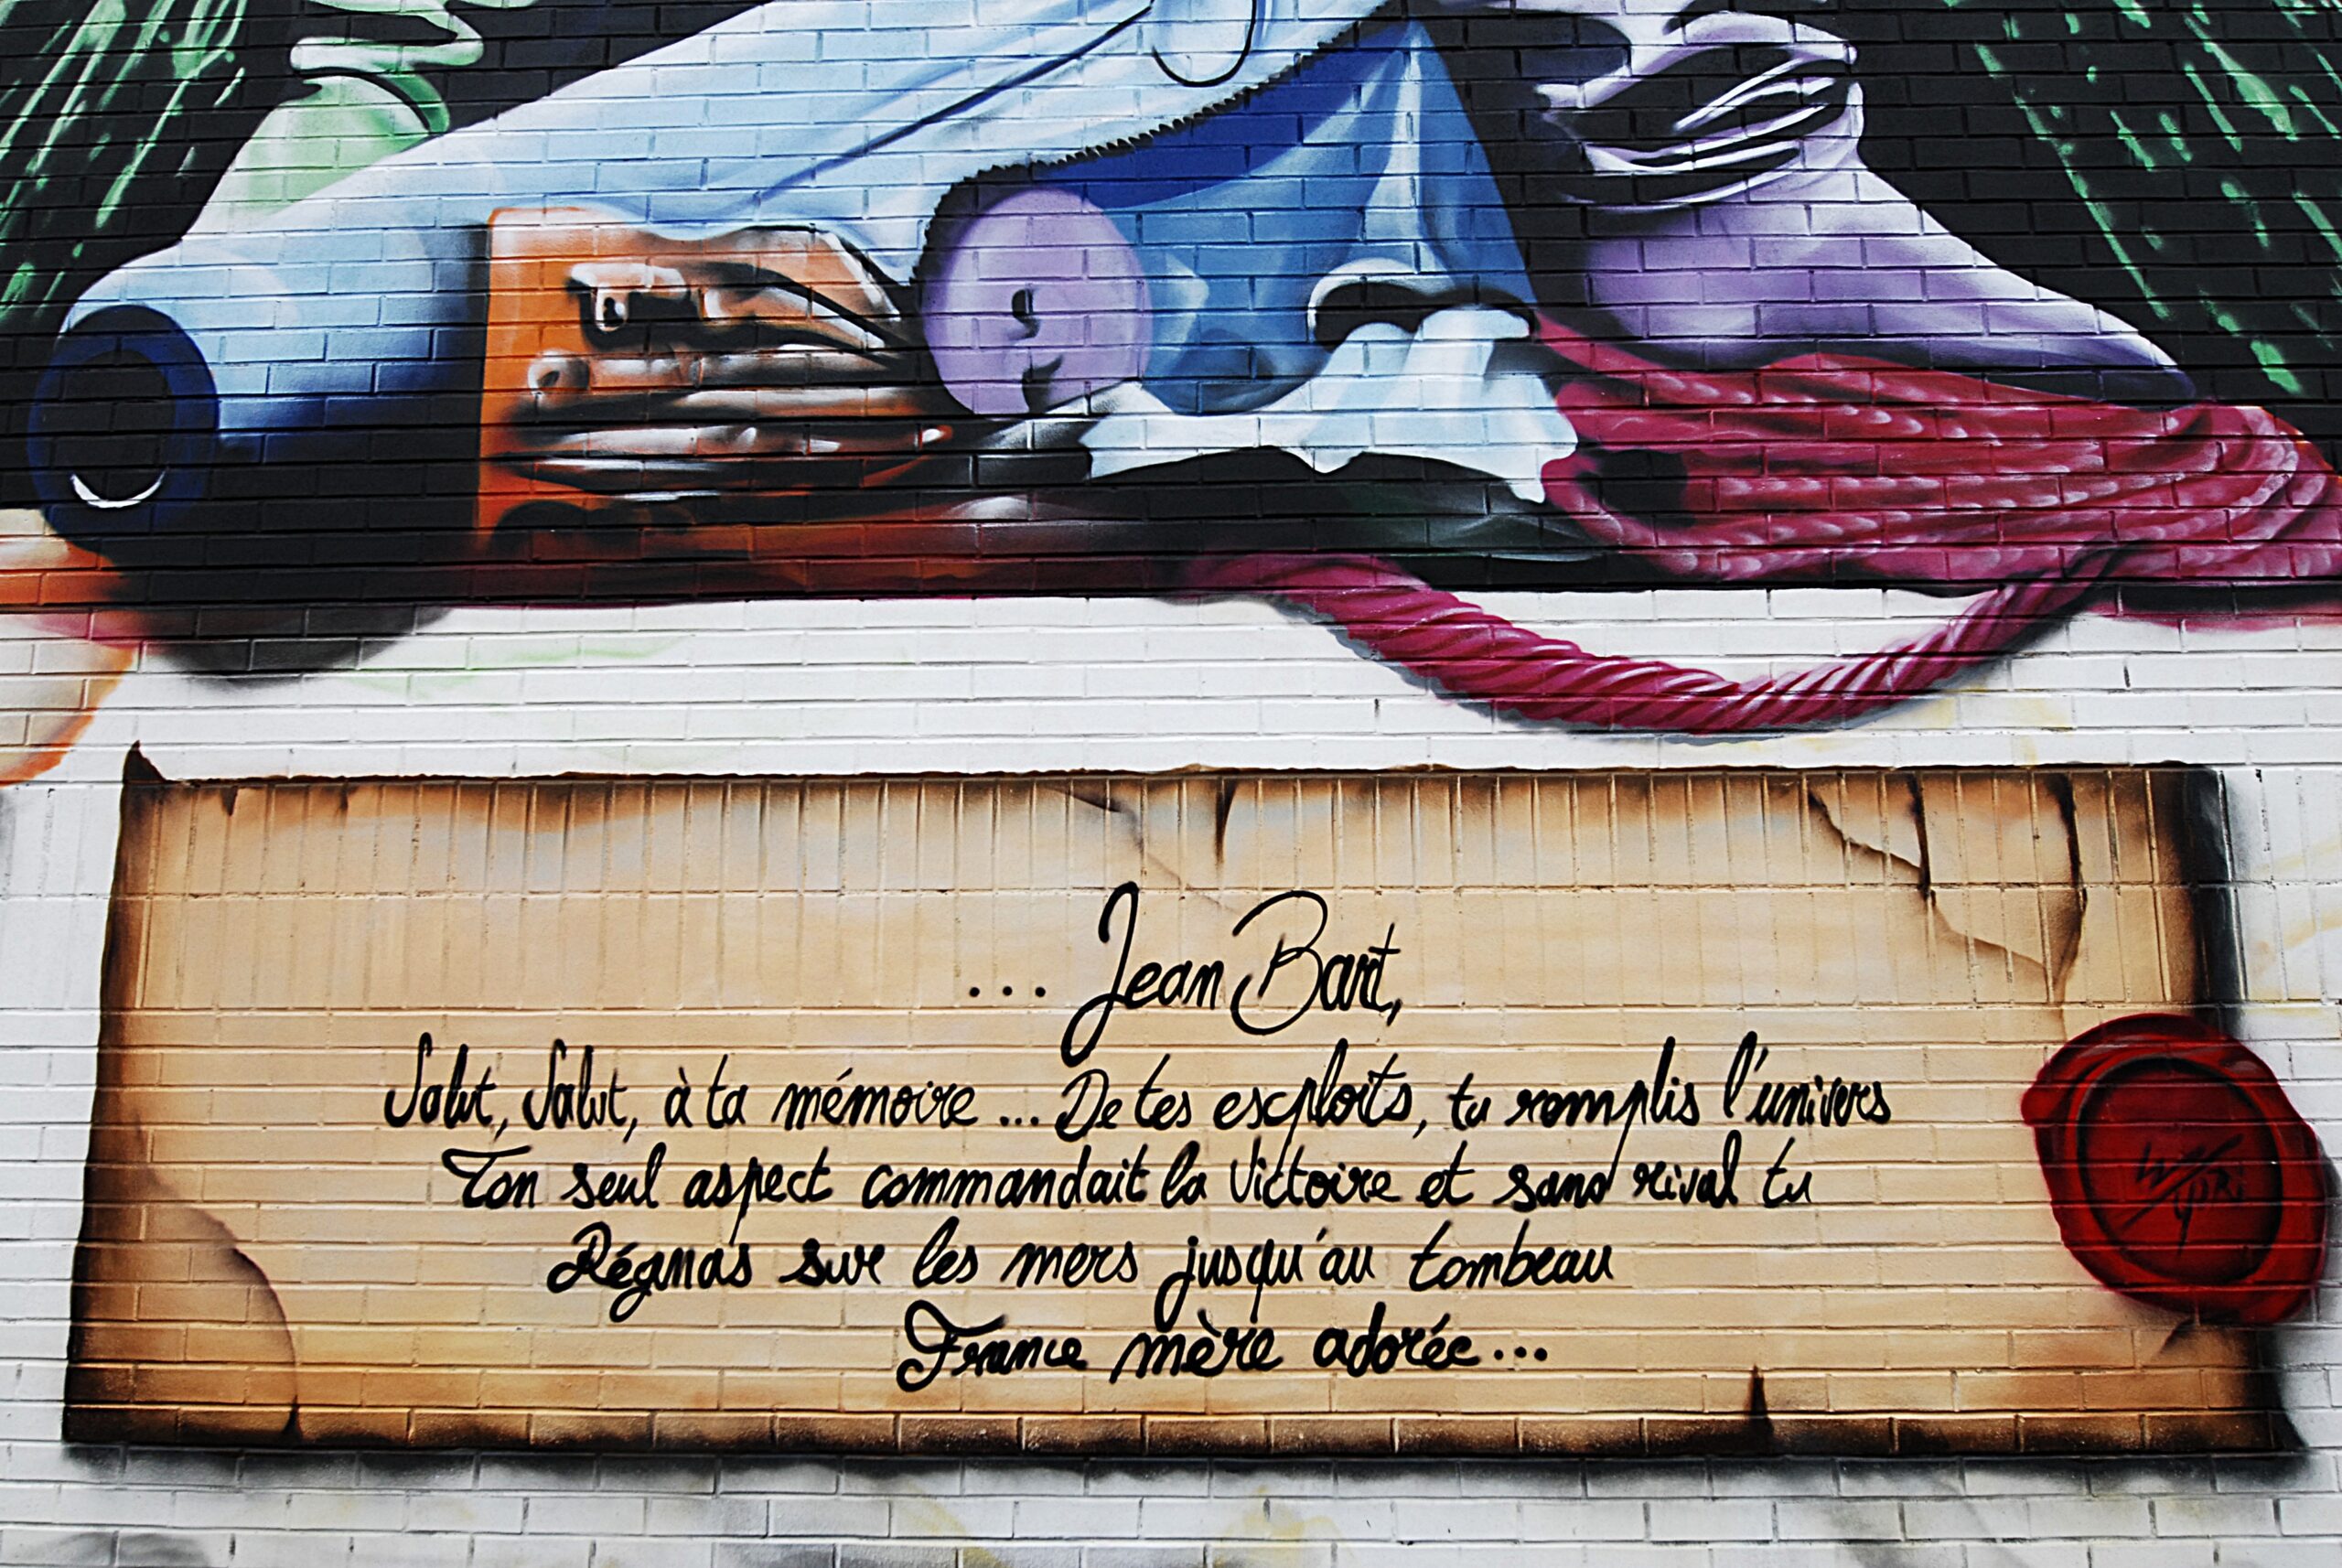 ... Jean Bart,
Salut, Salut, à ta mémoire ... De tes exploits, tu remplis l'univers
Ton seul aspect commandait la Victoire et sans rival tu
Régnas sur les mers jusqu'au tombeau
France mère adorée ...